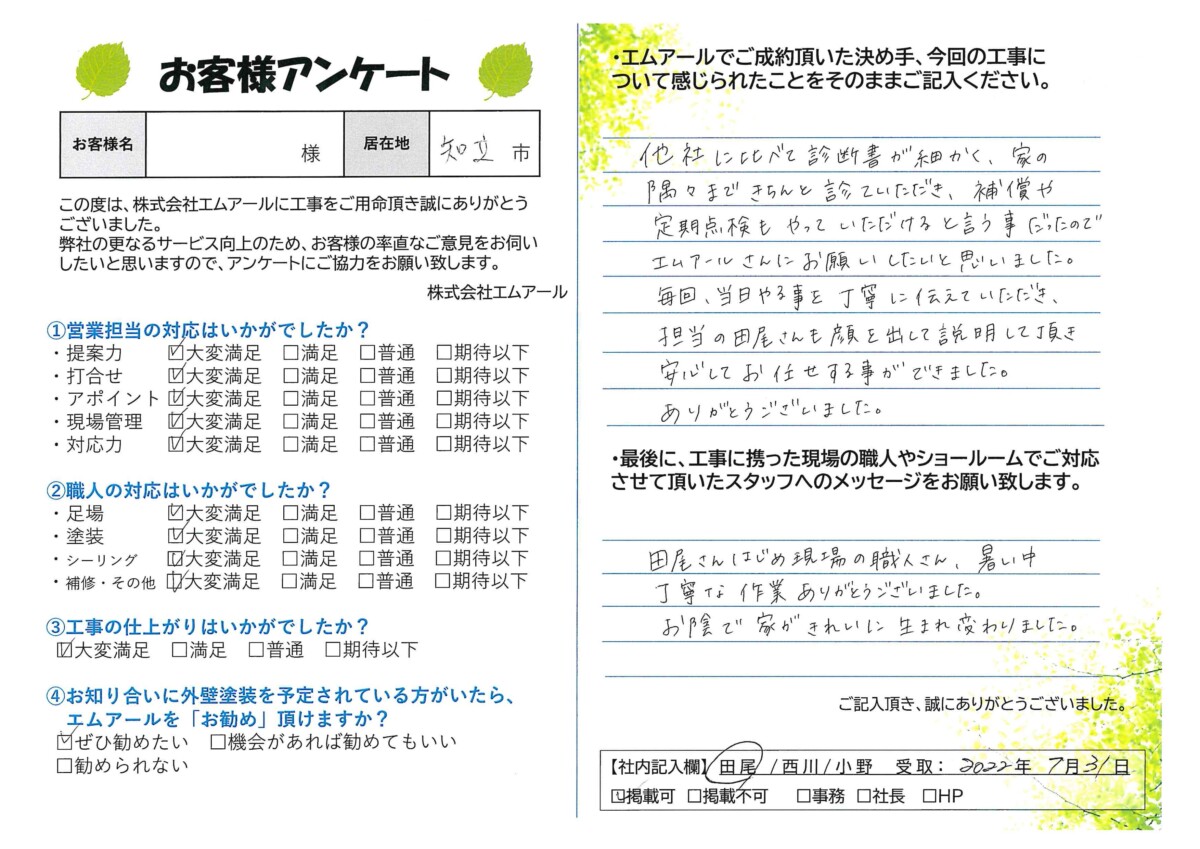 お客様アンケート
お客様名 様 居在地 知立 市
この度は、株式会社エムアールに工事をご用命頂き誠にありがとう
ございました。
弊社の更なるサービス向上のため、お客様の率直なご意見をお伺い
したいと思いますので、アンケートにご協力をお願い致します。
株式会社エムアール
①営業担当の対応はいかがでしたか？
・提案力 ☑大変満足 □満足 □普通 □期待以下
・打合せ ☑大変満足 □満足 □普通 □期待以下
・アポイント ☑大変満足 □満足 □普通 □期待以下
・現場管理 ☑大変満足 □満足 □普通 □期待以下
・対応力 ☑大変満足 □満足 □普通 □期待以下
②職人の対応はいかがでしたか？
・足場 ☑大変満足 □満足 □普通 □期待以下
・塗装 ☑大変満足 □満足 □普通 □期待以下
・シーリング ☑大変満足 □満足 □普通 □期待以下
・補修・その他 ☑大変満足 □満足 □普通 □期待以下
③工事の仕上がりはいかがでしたか？
☑大変満足 □満足 □普通 □期待以下
④お知り合いに外壁塗装を予定されている方がいたら、
エムアールを「お勧め」頂けますか？
☑ぜひ勧めたい □機会があれば勧めてもいい
□勧められない
・エムアールでご成約頂いた決め手、今回の工事に
ついて感じられたことをそのままご記入ください。
他社に比べて診断書が細かく、家の
隅々まできちんと診ていただき、補償や
定期点検もやっていただけると言う事だったので
エムアールさんにお願いしたいと思いました。
毎回、当日やる事を丁寧に伝えていただき、
担当の田尾さんも顔を出して説明して頂き
安心してお任せする事ができました。
ありがとうございました。
・最後に、工事に携った現場の職人やショールームでご対応
させて頂いたスタッフへのメッセージをお願い致します。
田尾さんはじめ現場の職人さん、暑い中
丁寧な作業ありがとうございました。
お陰で家がきれいに生まれ変わりました。
ご記入頂き、誠にありがとうございました。
【社内記入欄】 田尾 /西川/小野 受取： 2022年 7月31日
☑掲載可 □掲載不可 □事務 □社長 □HP